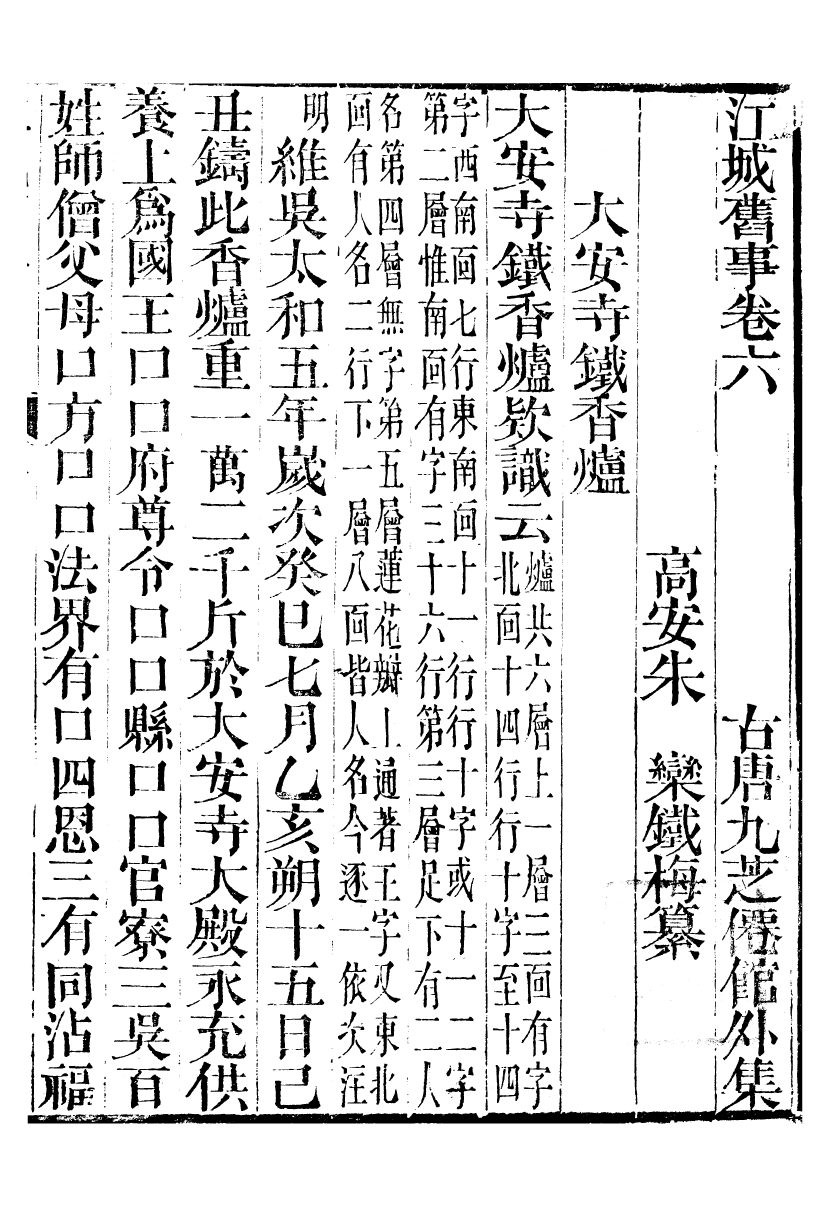 江城舊事卷六　古唐九芝僊館外集
高安朱　欒鐵梅纂
大安寺鐵香爐
大安寺鐵香爐欵識云
爐共六層上一層三面有字
北面十四行行十字至十四
字西南面七行東南面十一行行十字或十一二字
第二層惟南面有字三十六行第三層足下有二人
名第四層無字第五層蓮花瓣上通著王字又東北
面有人名二行下一層八面皆人名今逐一依次注
明
維吳太和五年嵗次癸巳七月乙亥朔十五日己
丑鑄此香爐重一萬二千斤於大安寺大殿永充供
養上爲國王口口府尊令口口縣口口官寮三吳百
姓師僧父母口方口口法界有口四恩三有同沾福